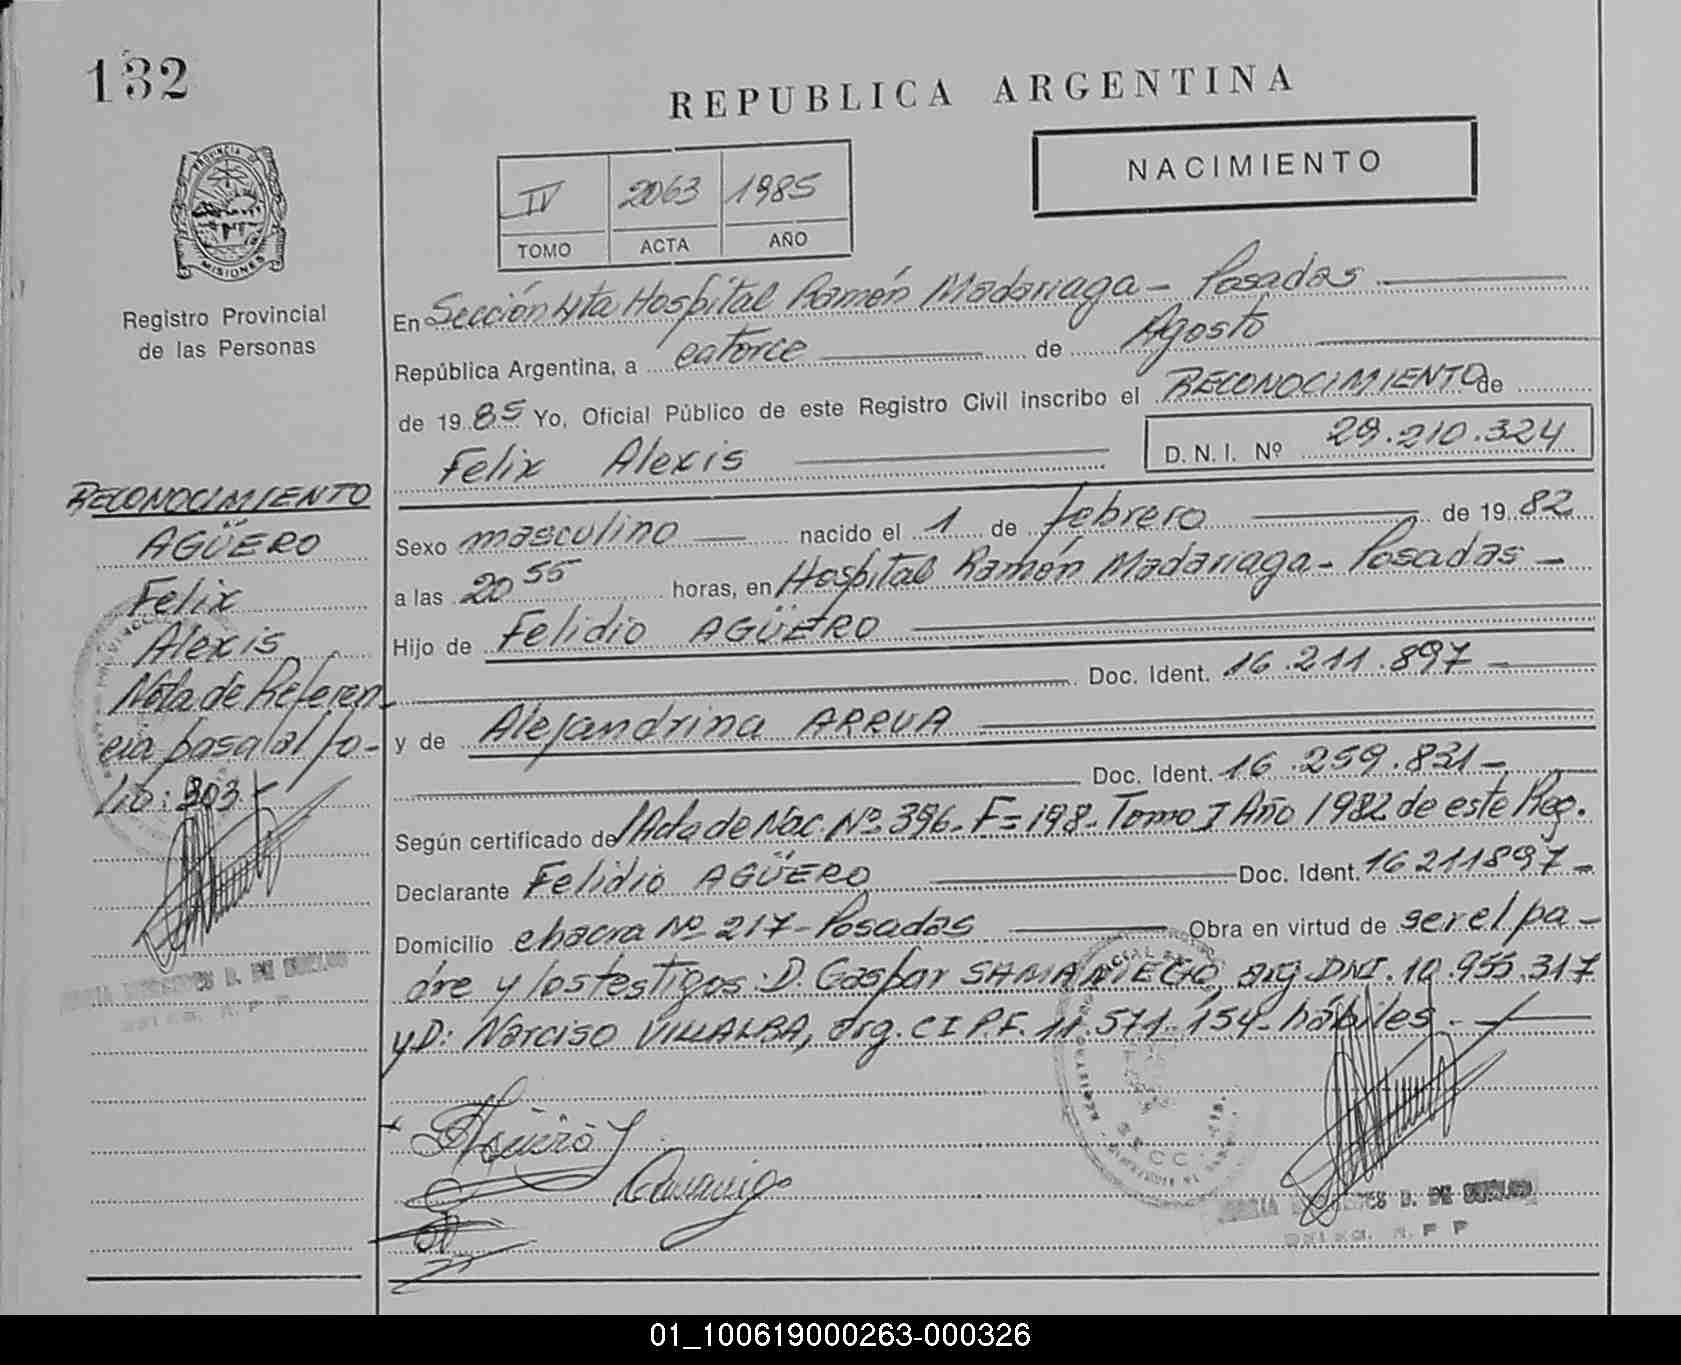 132
REPUBLICA ARGENTINA
NACIMIENTO
IV 2063 1985
TOMO ACTA AÑO
PROVINCIA DE
MISIONES
Registro Provincial
de las Personas
En Sección 4ta Hospital Ramón Madariaga - Posadas
República Argentina, a catorce de Agosto
de 1985 Yo, Oficial Público de este Registro Civil inscribo el RECONOCIMIENTO de
Felix Alexis D. N. I. Nº 29.210.324
RECONOCIMIENTO
AGÜERO
Felix
Alexis
Nota de Referen-
cia pasa al fo-
lio: 303
Sexo masculino nacido el 1 de febrero de 1982
a las 20 55 horas, en Hospital Ramón Madariaga - Posadas -
Hijo de Felidio AGÜERO
Doc. Ident. 16.211.897
y de Alejandrina ARRUA
Doc. Ident. 16.259.831 -
Según certificado de Acta de Nac. Nº 396- F= 198- Tomo I Año 1982 de este Reg.
Declarante Felidio AGÜERO Doc. Ident. 16211897 -
Domicilio chacra Nº 217 - Posadas Obra en virtud de ser el pa-
dre y los testigos: D. Gaspar SAMANIEGO, arg. DNI. 10.955.317
y D: Narciso VILLALBA, arg. C I P.F. 11.571.154- hábiles.-
Agüero
01_100619000263-000326